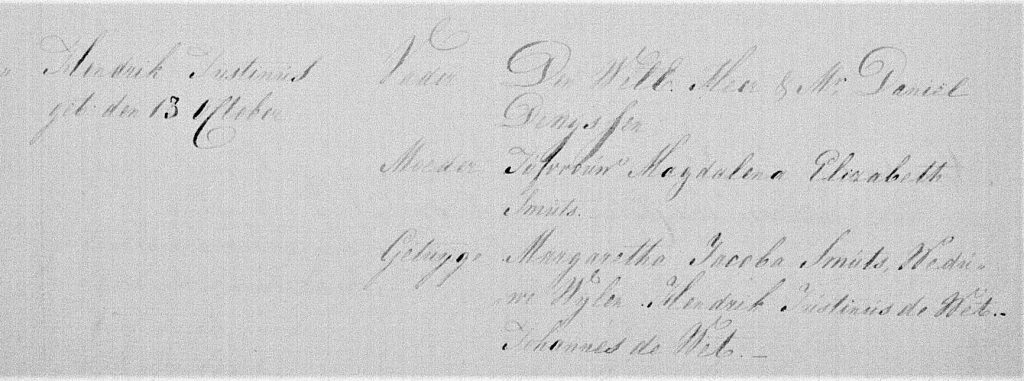 Hendrik Justinus Vader Den WelEd. Heer & Mr. Daniel
geb: den 13 October Denyssen
Moeder Jufvrouw Magdalena Elizabeth
Smuts.
Getuyge Margaretha Jacoba Smuts, Wedu-
we Wylen Hendrik Justinus de Wet.-
Johannes de Wet. -